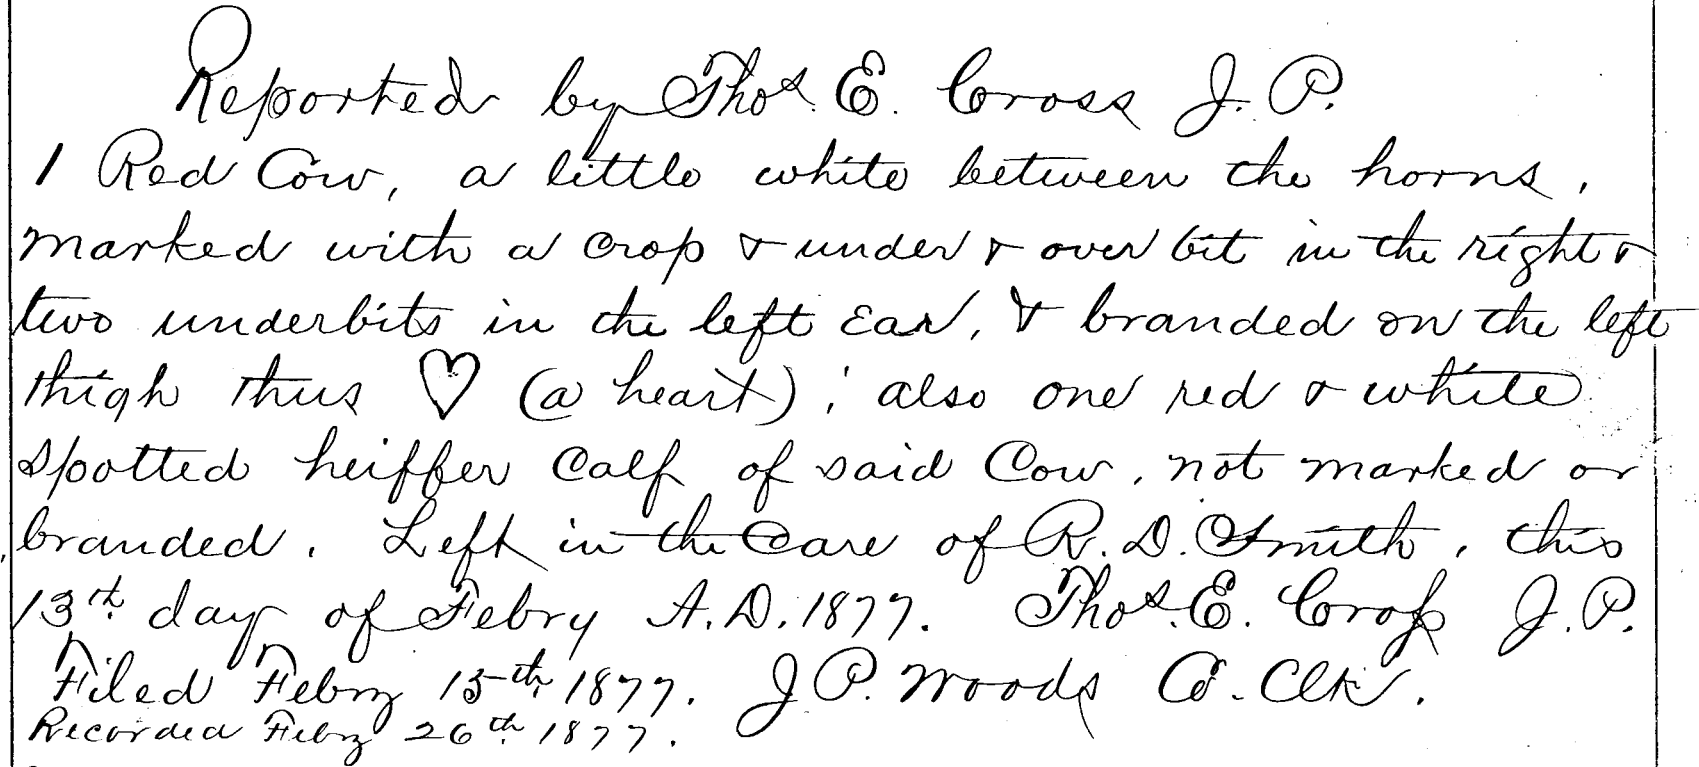 Reported by Thos. E. Cross J. P.
1 Red Cow, a little white between the horns,
marked with a crop & under & over bit in the right &
two underbits in the left ear, & branded on the left
thigh thus ♡ (a heart); also one red & white
spotted heiffer calf of said Cow, not marked or
branded. Left in the Care of R. D. Smith, this
13th. day of Febry A.D. 1877. Thos. E. Croſs J. P.
Filed Febry 15th, 1877. J P. Woods Co. Clk.
Recorded Febry 26th. 1877.